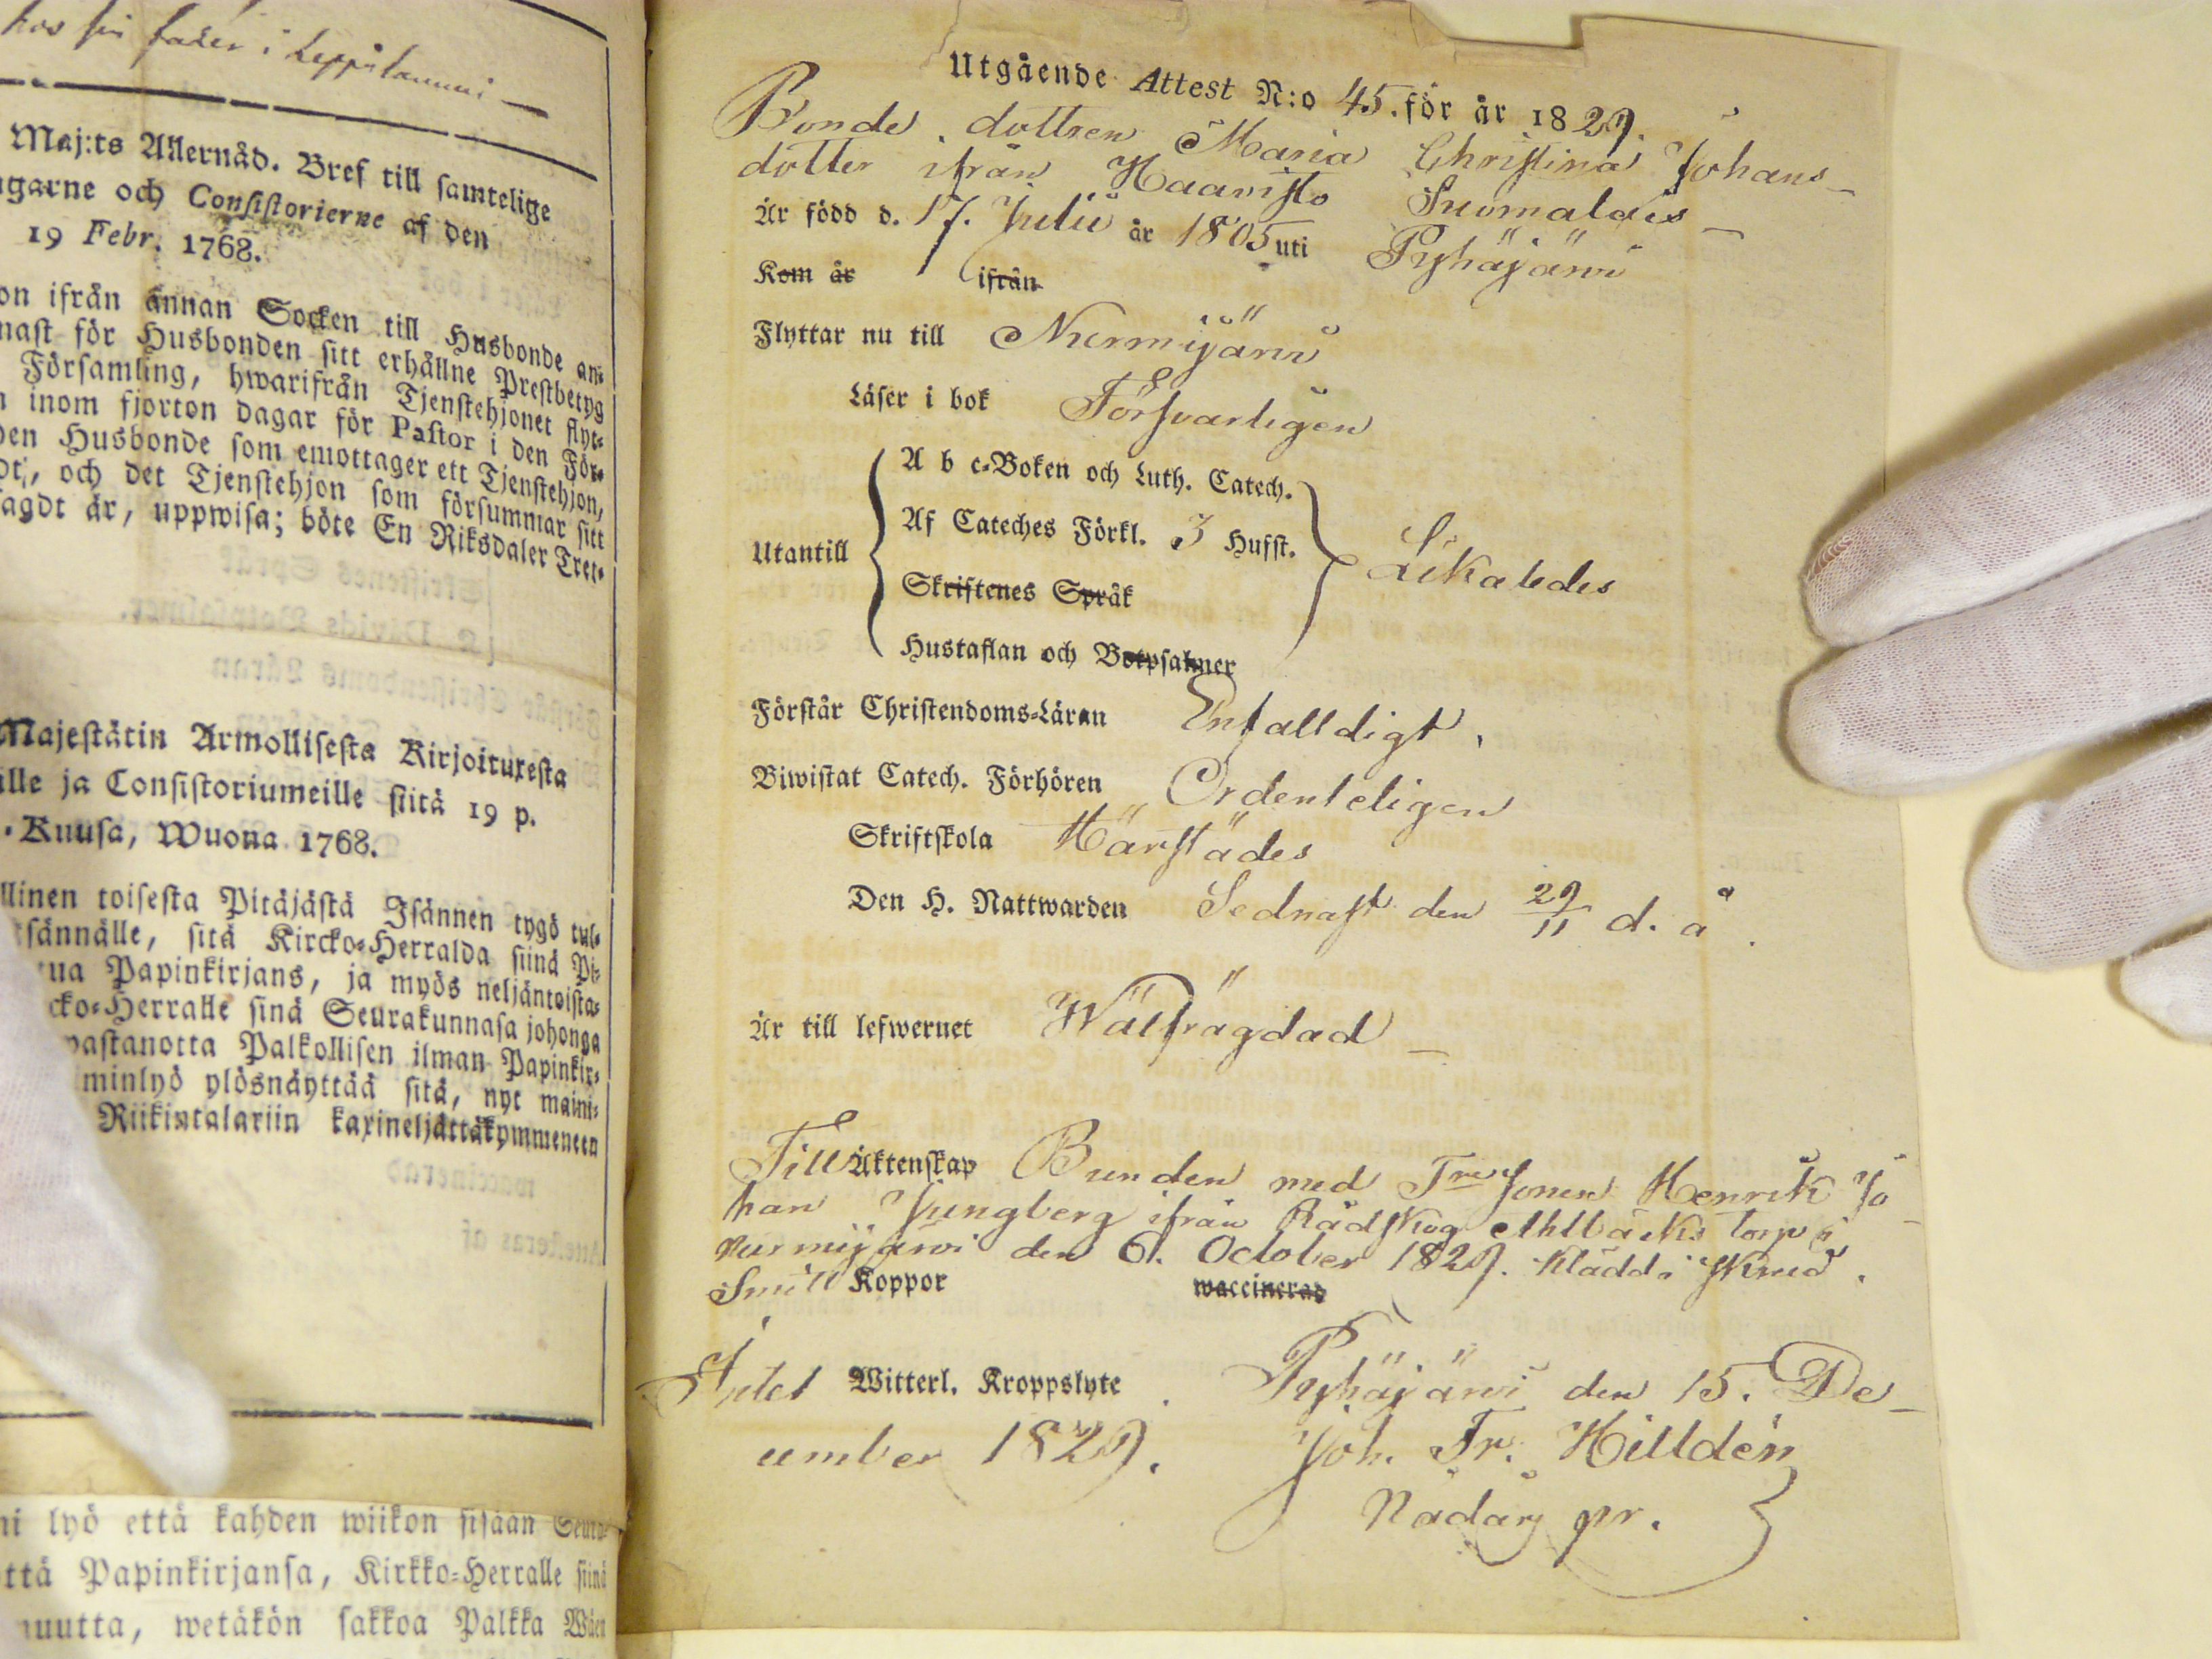 hos sin fader i Leppälammi
Maj:ts Allernåd. Bref till samtelige
ngarne och Consistorierne af den
19 Febr. 1768.
on ifrån annan Socken till Husbonde an-
nast för Husbonden sitt erhållne Prestbetyg
Församling, hwarifrån Tjenstehjonet flyt-
n inom fjorton dagar för Pastor i den För-
den Husbonde som emottager ett Tjenstehjon,
dt, och det Tjenstehjon som försummar sitt
agdt är, uppwisa; böte En Riksdaler Tret-
Majestätin Armollisesta Kirjoituxesta
ille ja Consistoriumeille siitä 19 p.
Kuusa, Wuona 1768.
llinen toisesta Pitäjästä Isännen tygö tul-
sännälle, sitä Kircko-Herralda siinä Pi-
ua Papinkirjans, ja myös neljäntoista-
cko-Herralle sinä Seurakunnasa johonga
pastanotta Palkollisen ilman Papinkir-
minlyö ylösnäyttää sitä, nyt maini-
Riikintalariin kaxineljättäkymmeneen
ni lyö että kahden wiikon sisään Seura-
ttä Papinkirjansa, Kirkko-Herralle siinä
muutta, wetäkön sakkoa Palkka Wäen
Utgående Attest N:o 45. för år 1829.
Bonde dottren Maria Christina Johans-
dotter ifrån Haavisto Suomalais
Är född d. 17. Julii år 1805 uti Pyhäjärvi
Kom år ifrån
Flyttar nu till Nurmijärvi
Läser i bok Försvarligen
A b c-Boken och Luth. Catech.
Af Cateches Förkl. 3 Hufst.
Utantill Likaledes
Skriftenes Språk
Hustaflan och Botpsalmer
Förstår Christendoms-Läran Enfalldigt.
Biwistat Catech. Förhören Ordenteligen
Skriftskola Härstädes
Den H. Nattwarden Sednast den 29/11 d. å.
Är till lefwernet Wälfrägdad
Till Äktenskap Bunden med Jonen Henrik Jo-
han Ljungberg ifrån Rådskog Ahlbäcks torp i
Nurmijärvi den 6. October 1829. Klädd i skrud.
Smitt Koppor waccinerad
Intet Witterl. Kroppslyte. Pyhäjärvi den 15. De-
cember 1829. Joh. Fr. Hilldén
Nådår pr.